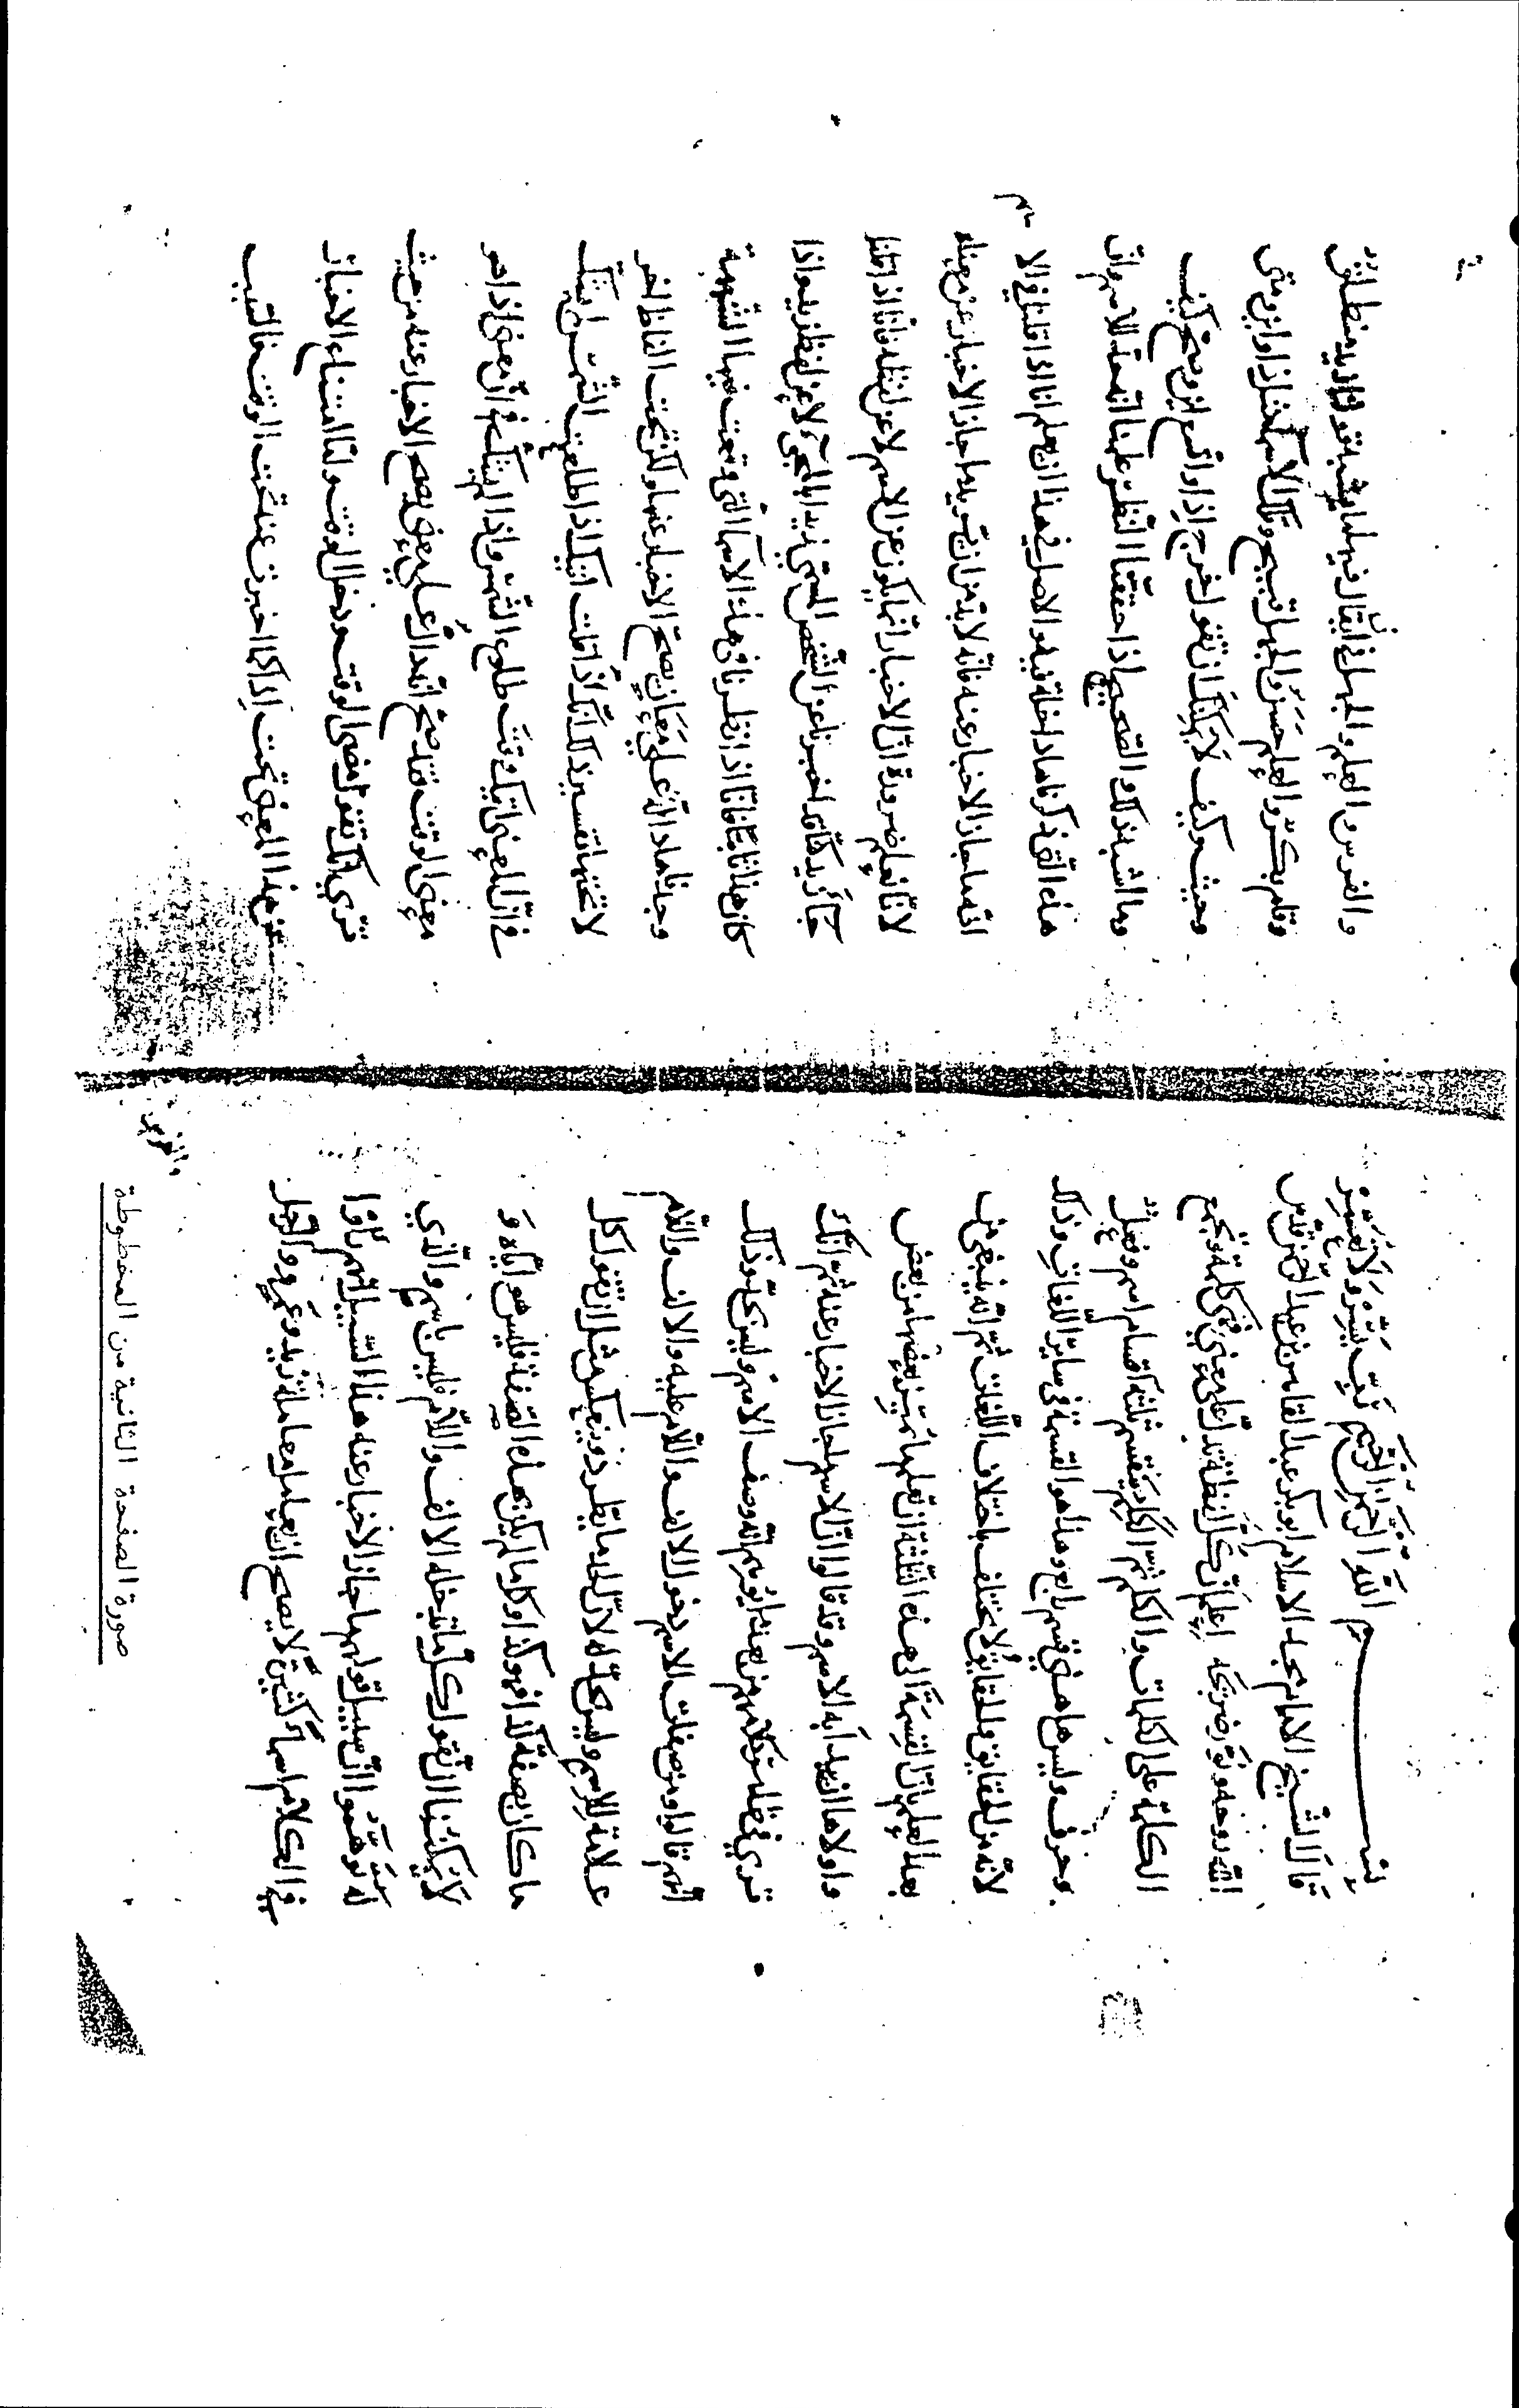 بسم الله الرحمن الرحيم رب يسر ولا تعسر
قال الشيخ الامام مجد الاسلام ابو بكر عبد القاهر بن عبد الرحمن قدس
الله روحه ونور ضريحه اعلم ان كل لفظة تدل على معنى فهي كلمة وتجمع
الكلمة على الكلمات والكلم ثم الكلم ينقسم ثلثة اقسام اسم وفعل
وحرف وليس هاهنا قسم رابع وهذا هو القسمة في سائر اللغات وذلك
لانه من الحقايق والحقايق لا يختلف باختلاف اللغات ثم انه ينبغي من
بعد العلم بان القسمة الى هذه الثلثة ان تعلم ما تميز بعضها من بعض
واولاها ان يبدأ به الاسم وقد قالوا ان الاسم ما جاز الاخبار عنه ثم انك
ترى في ظاهر كلامهم من بعد انهم انه وصف الاسم وليس بحد وذلك
انهم قالوا ومن صفات الاسم دخول الالف واللام عليه والالف واللام
علامة للاسم وليس بحد له لان الحد ما يطرد وينعكس مثل ان تقول كل
ما كان بصفة كذا فهو كذا وكل ما لم يكن بهذه الصفة فليس هو اياه و
لا يمكننا ان نقول كل ما لم تدخله الالف واللام فليس باسم والذي
له توهموا ان سبيل قولهم ما جاز الاخبار عنه هذا السبيل انهم رأوا
في الكلام اسماء كثيرة لا يصح ان يعامل معاملة زيد وعمرو والرجل
والفرس
والفرس والعلم والجهل في ان يقال فيها ما يشبه قولنا زيد منطلق
وقام بكر والعلم حسن والجهل قبيح وتلك الاسماء نحو اذا واين ومتى
وحيث وكيف لا يمكنك ان تقول خرج اذا واتسع اين وصح كيف
وما اشبه ذلك والصحيح اذا حققنا النظر علمنا انه حد للاسم وان
هذه التي ذكرناها داخلة فيه والاصل في هذا ان نعلم انا اذا قلنا في الاسم
انه ما جاز الاخبار عنه فانه لا بد من ان نريد ما جاز الاخبار عن معناه
لانا نعلم ضرورة ان الاخبار انما يكون عن الاسم لا عن لفظه فانا اذا قلنا
جاء زيد كنا قد اخبرنا عن الشخص المسمى زيدا بالمجيء لا عن لفظ زيد واذا
كان هذا ثابتا فانا اذا نظرنا في هذه الاسماء التي وقعت فيها الشبهة
وجدناها دالة على معان يصح الاخبار عنها ولكن تحت الفاظ اخر
لا تحتها تفسير ذلك انك اذا قلت آتيك اذا طلعت الشمس لم يشك
في ان المعنى آتيك وقت طلوع الشمس واذا لم يشك في ان معنى اذا هو
معنى الوقت فقد صح انه دال على معنى يصح الاخبار عنه من حيث
ترى انك تقول مضى الوقت ودخل الوقت ولما امتناع الاخبار
عن هذا المعنى تحت اذا كما اخبرت عنه تحت الوقت فالسبب
صورة الصفحة الثانية من المخطوطة